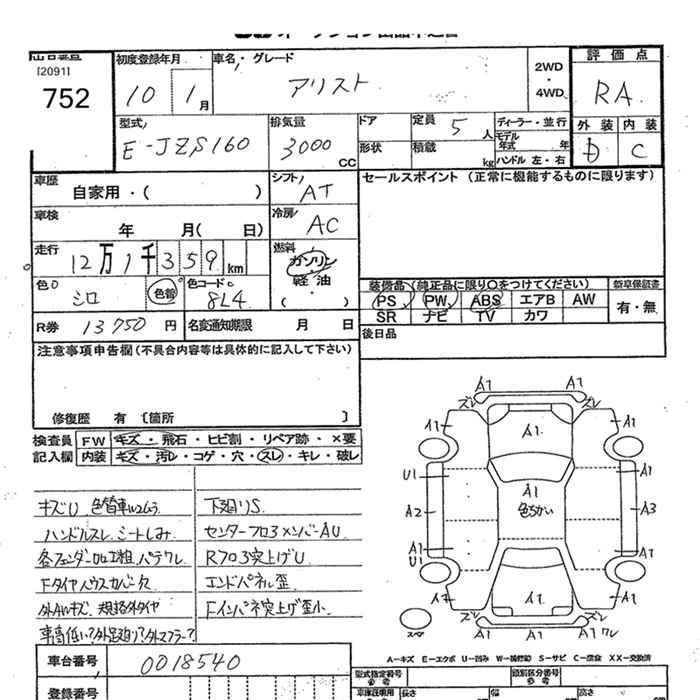 オークション出品申込書
出品番号
[2091]
752
初度登録年月
10 1月
車名・グレード
アリスト
2WD
・
4WD
評価点
RA
型式
E-JZS160
排気量
3000 CC
ドア
形状
定員 5 人
積載 kg
ディーラー・並行
モデル年式 年
ハンドル 左・右
外装 内装
D C
車歴
自家用・( )
シフト
AT
セールスポイント(正常に機能するものに限ります)
車検
年 月( 日)
冷房
AC
走行
12万1千359km
燃料
ガソリン
・
軽油
( )
色
シロ
色替
色コード
8L4
装備品(純正品に限り○をつけてください)
新車保証書
PS PW ABS エアB AW
有・無
SR ナビ TV カワ
R券 13750 円
名変通知期限 月 日
後日品
注意事項申告欄(不具合内容等は具体的に記入して下さい)
修復歴 有 〔箇所 〕
検査員 FW キズ・飛石・ヒビ割・リペア跡・×要
記入欄 内装 キズ・汚レ・コゲ・穴・スレ・キレ・破レ
キズU 色替車ツヤムラ
下廻りS
ハンドルスレ シートしみ
センターフロアメンバーAU
各フェンダー加工粗 パテワレ
Rフロア突上げU
Fタイヤハウスカバー欠
エンドパネル歪
外AWキズ 規格外タイヤ
Fインパネ突上げ歪小
車高低い?外足廻り?外マフラー?
A1 A1
ズレ ズレ
A1 A1 A1
U1 A1
A1
色ちがい
A2 A3
A1 A1
U1
A2 A1 A1
ズレ ズレ
スペア
A1 A1 ワレ
A-キズ E-エクボ U-凹み W-補修跡 S-サビ C-腐食 XX-交換済
車台番号
0018540
型式指定番号
類別区分番号
登録番号
長さ 幅 高さ